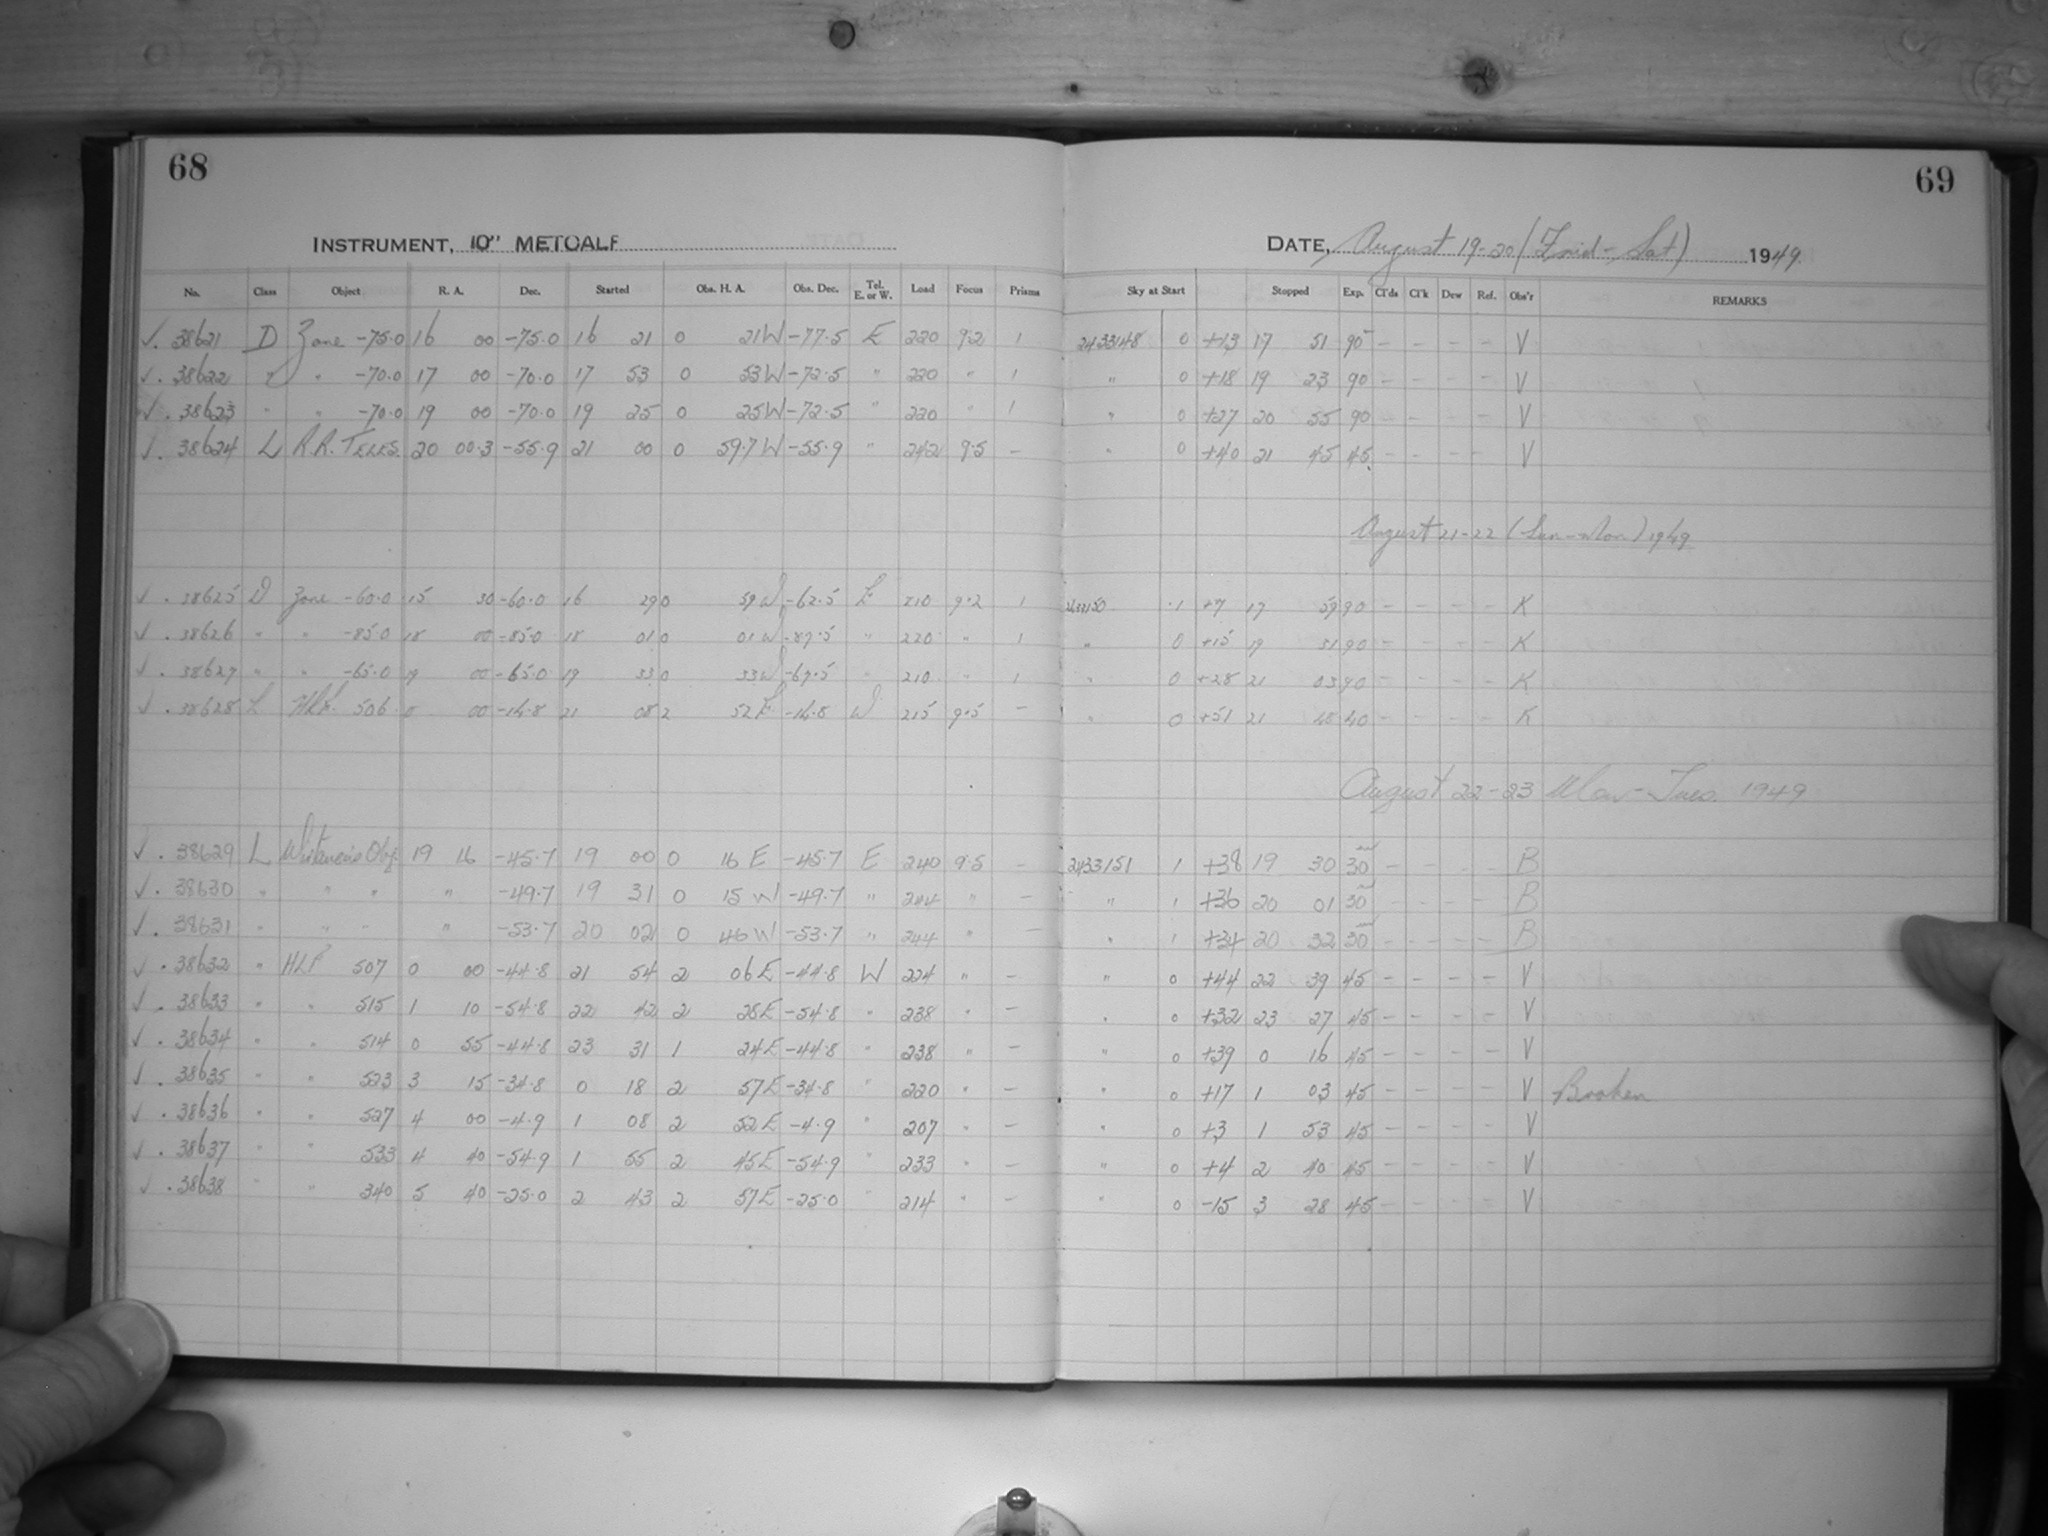 68
69
INSTRUMENT, 10" METCALF
DATE, August 19-20 (Frid-Sat) 1949
No. Class Object R. A. Dec. Started Obs. H. A. Obs. Dec. Tel. E. or W. Load Focus Prisms Sky at Start Stopped Exp. Cl'ds Cl'k Dew Ref. Obs'r REMARKS
√. 38621 D Zone -75.0 16 00 -75.0 16 21 0 21W -77.5 E 220 9.2 1 2433148 0 +13 17 51 90 - - - - V
√. 38622 " " -70.0 17 00 -70.0 17 53 0 53W -72.5 " 220 " 1 " 0 +18 19 23 90 - - - - V
√. 38623 " " -70.0 19 00 -70.0 19 25 0 25W -72.5 " 220 " 1 " 0 +27 20 55 90 - - - - V
√. 38624 L R.R. TELES. 20 00.3 -55.9 21 00 0 59.7W -55.9 " 242 9.5 - " 0 +40 21 45 45 - - - - V
August 21-22 (Sun-Mon) 1949
√. 38625 D Zone -60.0 15 30 -60.0 16 29 0 59W -62.5 E 210 9.2 1 2433150 1 +7 17 59 90 - - - - K
√. 38626 " " -85.0 18 00 -85.0 18 01 0 01W -87.5 " 220 " 1 " 0 +15 19 31 90 - - - - K
√. 38627 " " -65.0 19 00 -65.0 19 33 0 33W -67.5 " 210 " 1 " 0 +28 21 03 90 - - - - K
√. 38628 L 506 0 00 -14.8 21 08 2 52E -14.8 W 215 9.5 - " 0 +51 21 48 40 - - - - K
August 22-23 Mon-Tues. 1949
√. 38629 L Obj. 19 16 -45.7 19 00 0 16E -45.7 E 240 9.5 - 2433151 1 +38 19 30 30 - - - - B
√. 38630 " " " " -49.7 19 31 0 15W -49.7 " 244 " - " 1 +36 20 01 30 - - - - B
√. 38631 " " " " -53.7 20 02 0 46W -53.7 " 244 " - " 1 +34 20 32 30 - - - - B
√. 38632 " HLF 507 0 00 -44.8 21 54 2 06E -44.8 W 224 " - " 0 +44 22 39 45 - - - - V
√. 38633 " " 515 1 10 -54.8 22 42 2 28E -54.8 " 238 " - " 0 +32 23 27 45 - - - - V
√. 38634 " " 514 0 55 -44.8 23 31 1 24E -44.8 " 238 " - " 0 +39 0 16 45 - - - - V
√. 38635 " " 523 3 15 -34.8 0 18 2 57E -34.8 " 220 " - " 0 +17 1 03 45 - - - - V Broken
√. 38636 " " 527 4 00 -4.9 1 08 2 52E -4.9 " 207 " - " 0 +3 1 53 45 - - - - V
√. 38637 " " 533 4 40 -54.9 1 55 2 45E -54.9 " 233 " - " 0 +4 2 40 45 - - - - V
√. 38638 " " 340 5 40 -25.0 2 43 2 57E -25.0 " 214 " - " 0 -15 3 28 45 - - - - V